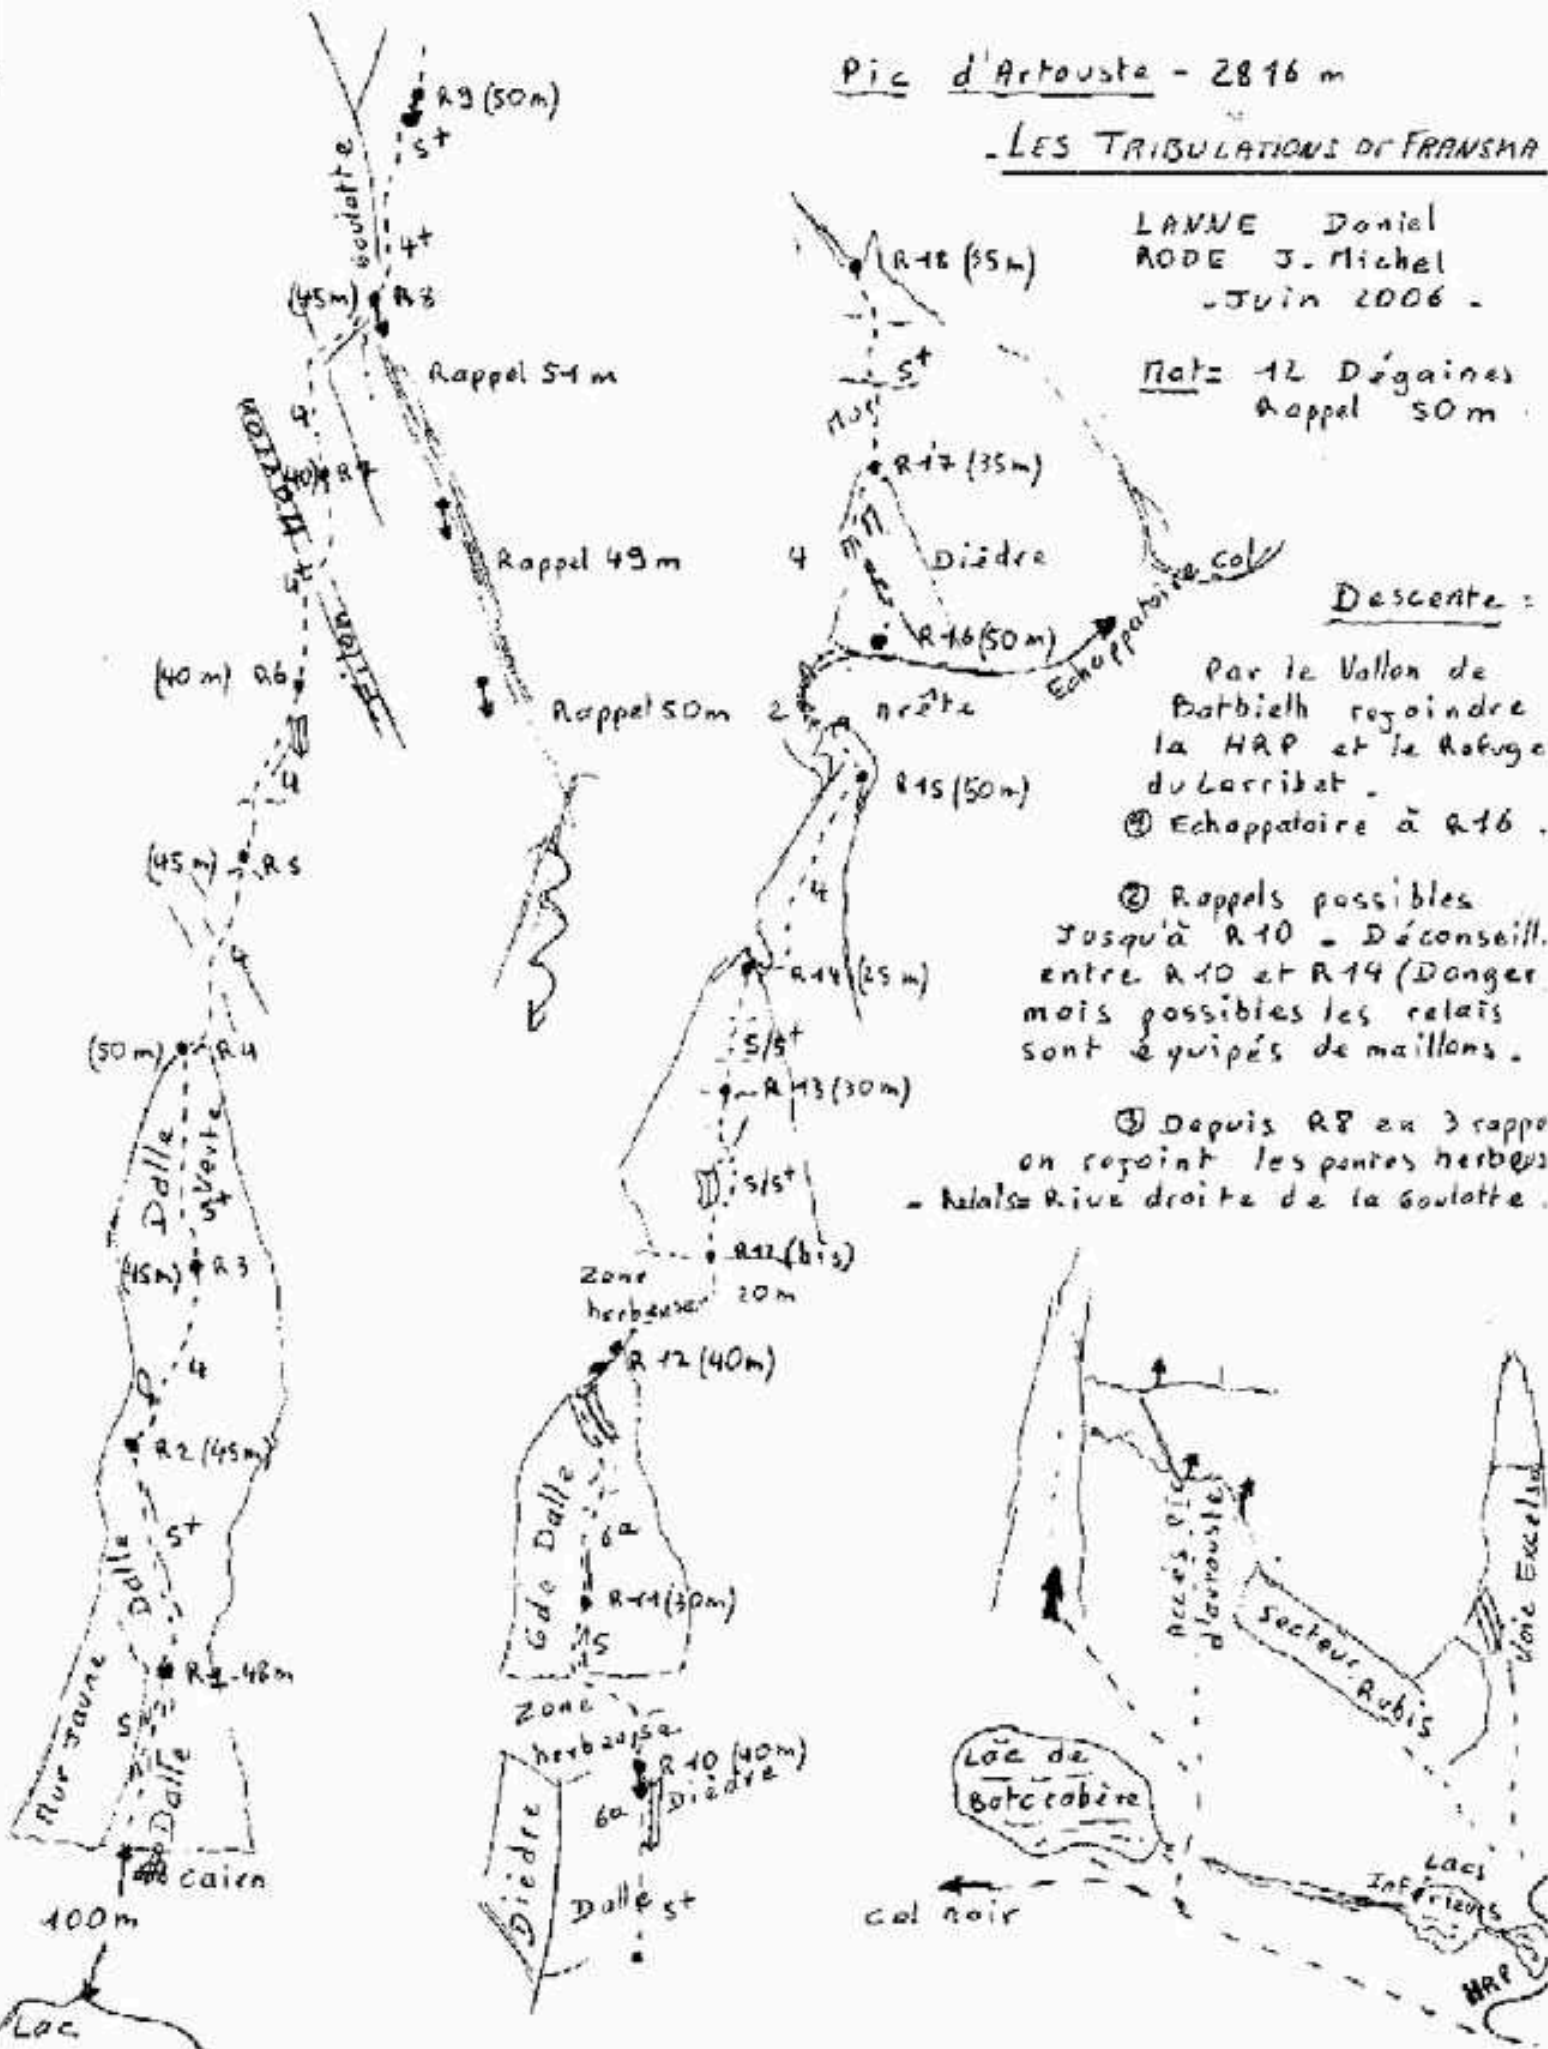 Pic d'Artouste - 2816 m
- LES TRIBULATIONS DE FRANSHA
LANNE Daniel
RODE J. Michel
- Juin 2006 -
Mat= 12 Dégaines
Rappel 50m
Descente :
Par le Vallon de
Batbielh rejoindre
la HRP et le Refuge
du Larribet .
① Echappatoire à R16 .
② Rappels possibles
Jusqu'à R10 - Déconseill.
entre R10 et R14 (Danger
mais possibles les relais
sont équipés de maillons .
③ Depuis R8 en 3 rappe
on rejoint les pentes herbeus
- Relais= Rive droite de la Goulotte .
R9 (50m)
5+
Goulotte
4+
(45m) R8
Rappel 51 m
4
40) R7
Rappel 49 m
5+
(40 m) R6
Rappel 50m
4
(45 m) R5
4
(50 m) R4
Dalle
Verte
5+
(45m) R3
4
R2 (45m)
5+
Dalle
R1 - 48m
5
Mur Jaune
Dalle
Cairn
100m
Lac
R18 (35m)
5+
Mur
R17 (35m)
4
Dièdre
R16 (50m)
Echappatoire
Col
2
Arête
R15 (50m)
4
R14 (25 m)
5/5+
R13 (30m)
5/5+
R12 (bis)
Zone
herbeuse
20m
R12 (40m)
Gde Dalle
6a
R11 (30m)
5
Zone
herbeuse
R10 (40m)
Dièdre
6a
Dièdre
Dalle 5+
Accès Pic
d'Artouste
Secteur Rubis
Voie Excelsa
Lac de
Batcrabère
Lacs
Inférieurs
Col noir
HRP